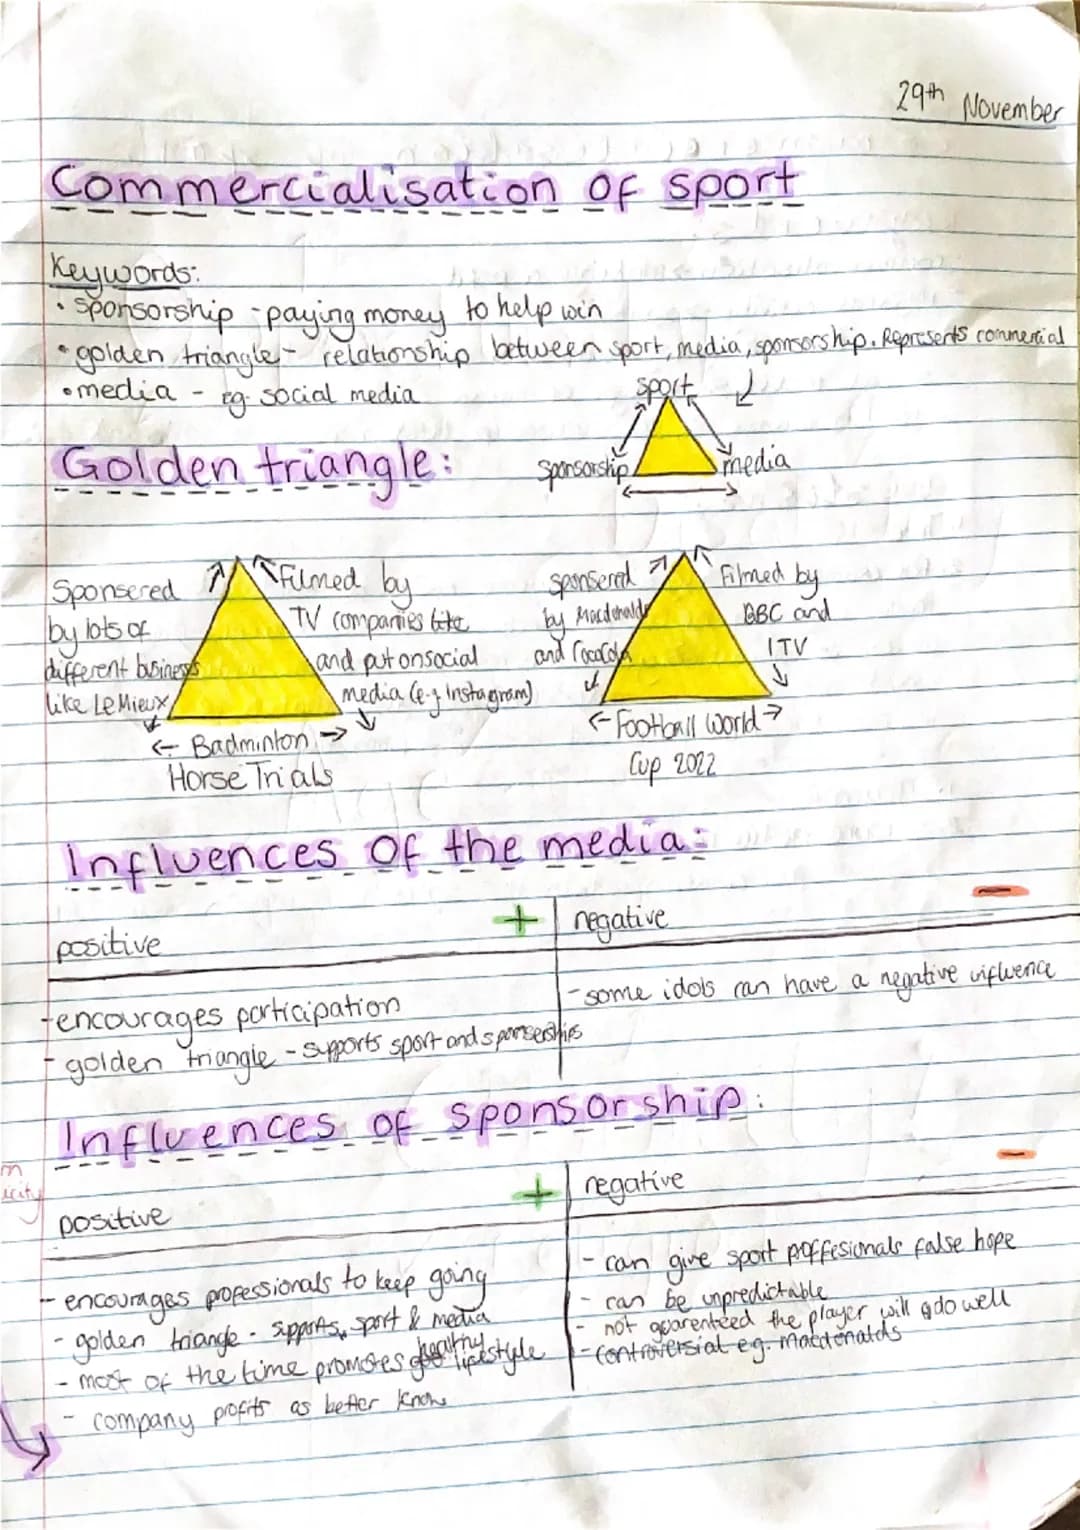 29th November
Commercialisation of sport
Keywords:
• sponsorship - paying money to help win
• golden triangle - relationship between sport, media, sponsorship. Represents commercial
• media - eg. social media
sport
Golden triangle:
sponsorship
media
Sponsered
by lots of
different business
like LeMieux
Filmed by
TV companies like
and put on social
media (e.g Instagram)
← Badminton →
Horse Trials
sponsered
by Macdonalds
and CocaCola
Filmed by
BBC and
ITV
← Football World →
Cup 2022
Influences of the media:
positive +
negative -
- encourages participation
- golden triangle - supports sport and sponserships
- some idols can have a negative influence
Influences of sponsorship:
positive +
negative -
- encourages professionals to keep going
- golden triangle - supports sport & media
- most of the time promotes healthy lifestyle
- company profits as better know
- can give sport proffesionals false hope
- can be unpredictable
- not guarenteed the player will do well
- controversial e.g. Macdonalds